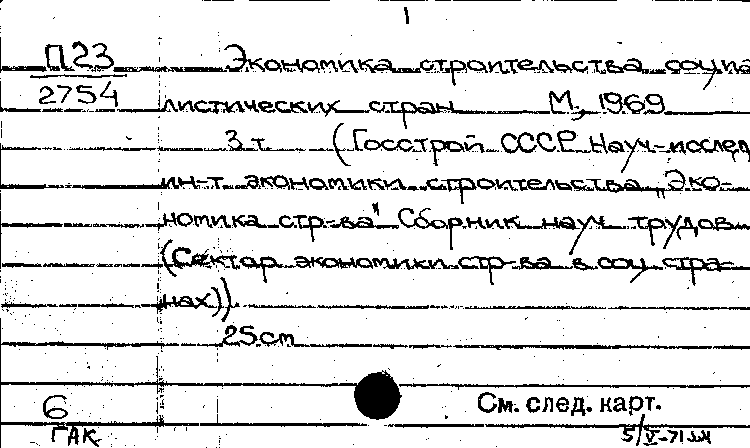 1
П23 Экономика строительства социа-
2754 листических стран М., 1969
3 т. (Госстрой СССР. Науч.-исслед.
ин-т экономики строительства „Эко-
номика стр-ва" Сборник науч. трудов
(Сектор экономики стр-ва в соц. стра-
нах)).
25 cm
6 См. след. карт.
ГАК 5/V-71